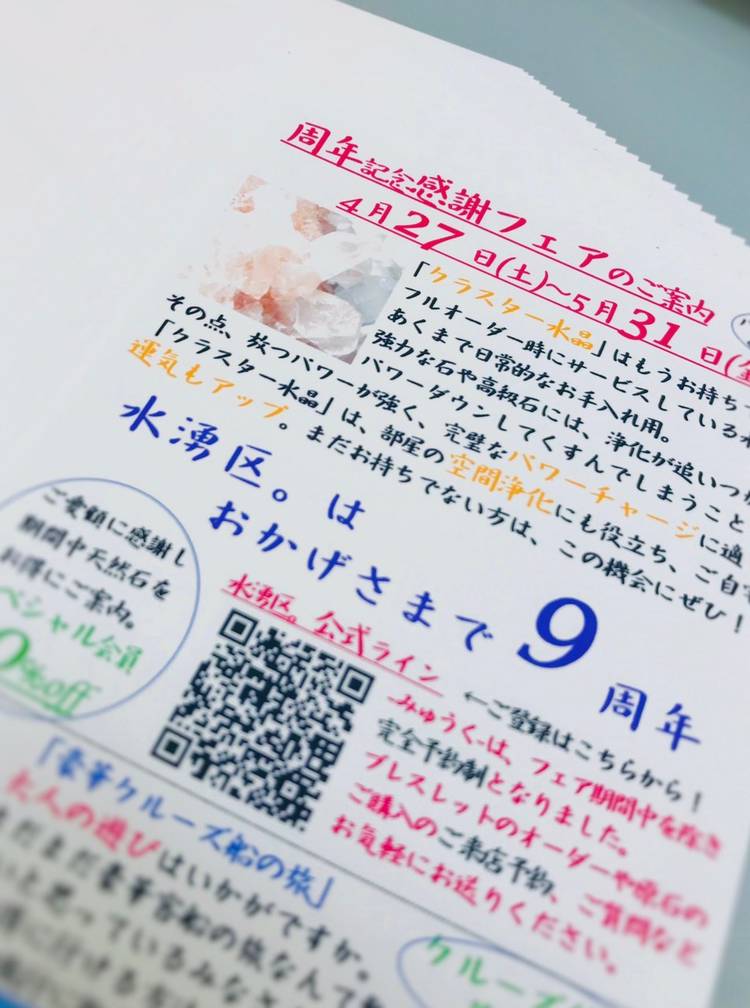 周年記念感謝フェアのご案内
4月27日(土)~5月31日(金
「クラスター水晶」はもうお持ち
フルオーダー時にサービスしている
あくまで日常的なお手入れ用。
強力な石や高級石には、浄化が追いつか
パワーダウンしてくすんでしまうこと
その点、放つパワーが強く、完璧なパワーチャージに適
「クラスター水晶」は、部屋の空間浄化にも役立ち、ご自宅
運気もアップ。まだお持ちでない方は、この機会にぜひ!
水湧区。は
おかげさまで9周年
ご愛顧に感謝し
期間中天然石を
お得にご案内。
ペシャル会員
0%off
水湧区。公式ライン
←ご登録はこちらから!
-みゅうく-は、フェア期間中を除き
完全予約制となりました。
ブレスレットのオーダーや原石の
ご購入のご来店予約、ご質問など
お気軽にお送りください。
「豪華クルーズ船の旅」
大人の遊びはいかがですか。
まだまだ豪華客船の旅なんて
いと思っているみなさ
クルーズ